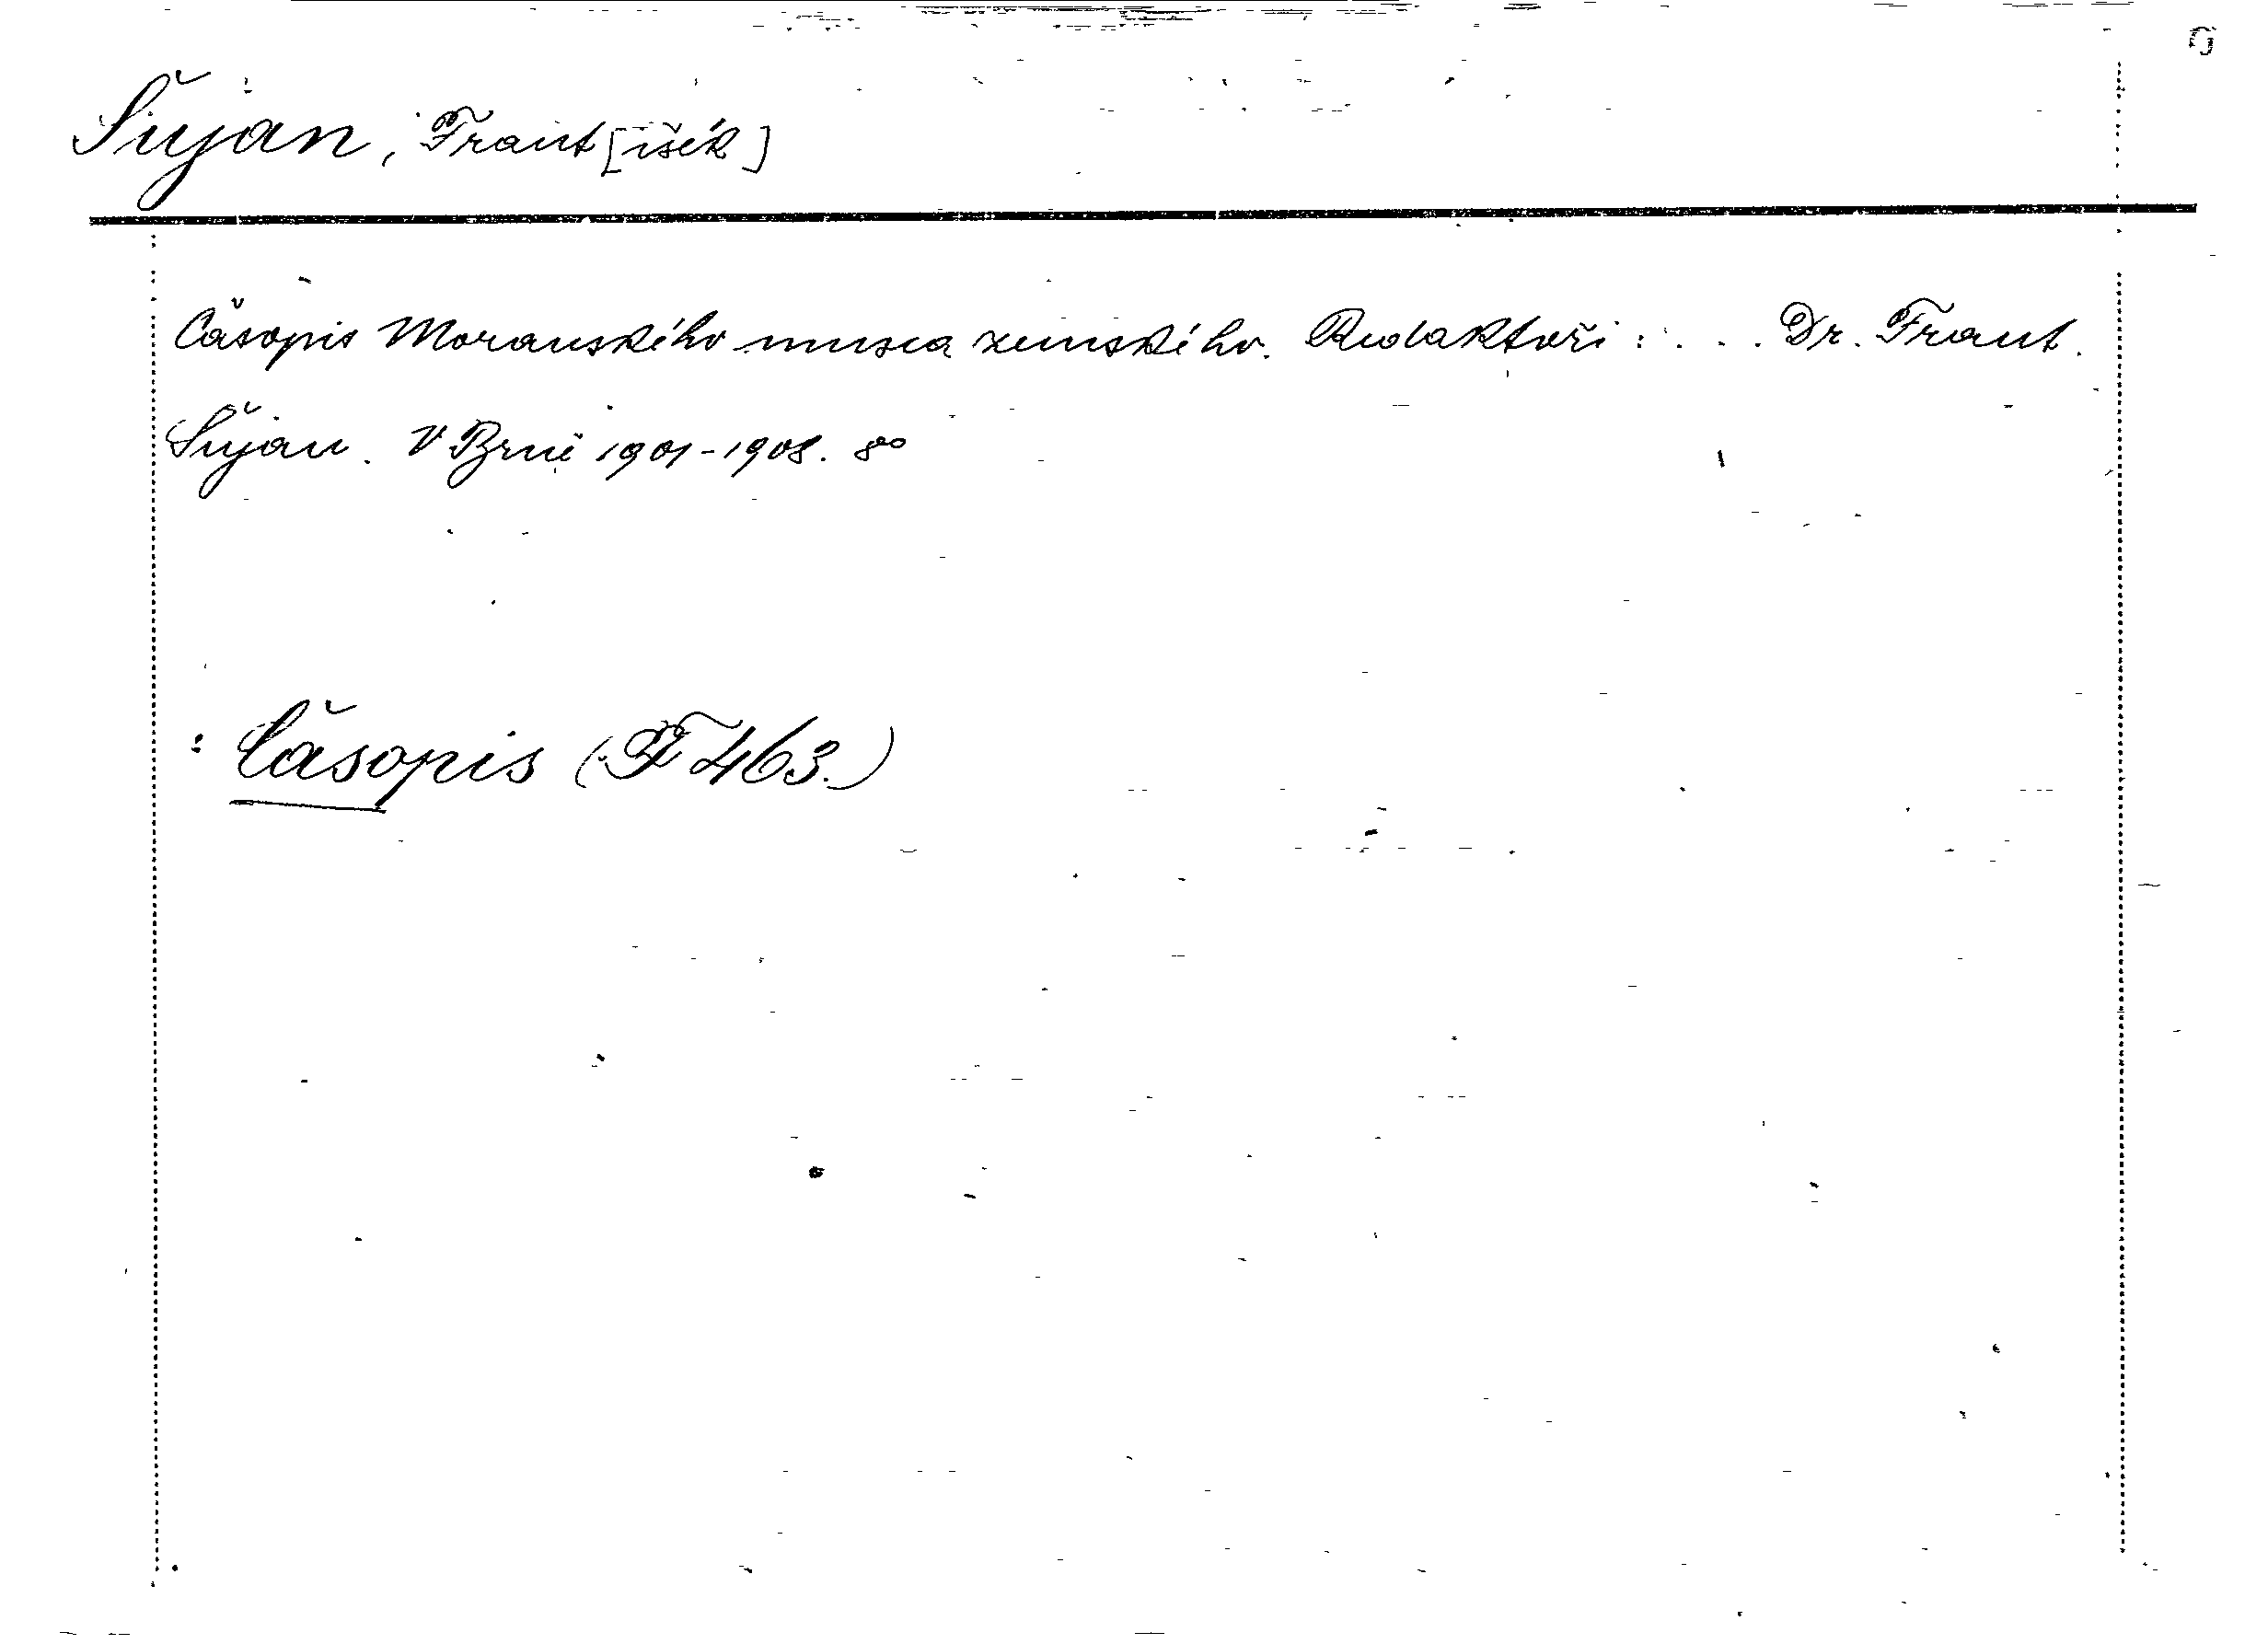 Šujan, Frant[išek]
Časopis Moravského musea zemského. Redaktoři: . . . Dr. Frant.
Šujan. V Brně 1901-1908. 8°
: Časopis (F 463.)